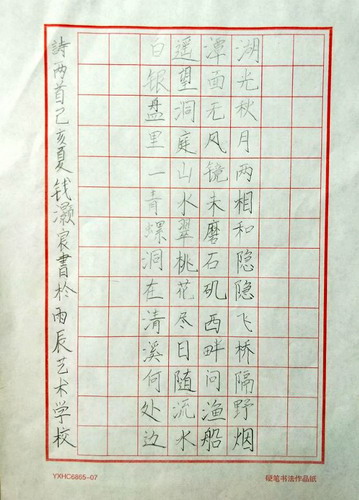 湖光秋月两相和隐隐飞桥隔野烟
潭面无风镜未磨石矶西畔问渔船
遥望洞庭山水翠桃花尽日随流水
白银盘里一青螺洞在清溪何处边
詩两首己亥夏钱灏宸書於雨辰艺术学校
YXHC6865-07
硬笔书法作品纸